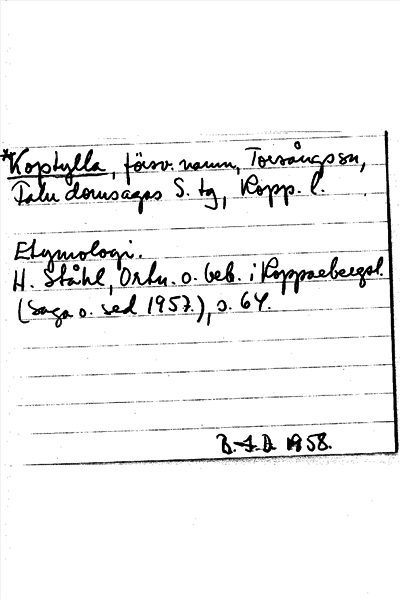 *Koptylla, försv. namn, Torsångs sn,
Falu domsagas S. tg, Kopp. l.
Etymologi.
H. Ståhl, Ortn. o. beb. i Kopparbergsl.
(Saga o. sed 1957), s. 64.
B. J. D. 1958.